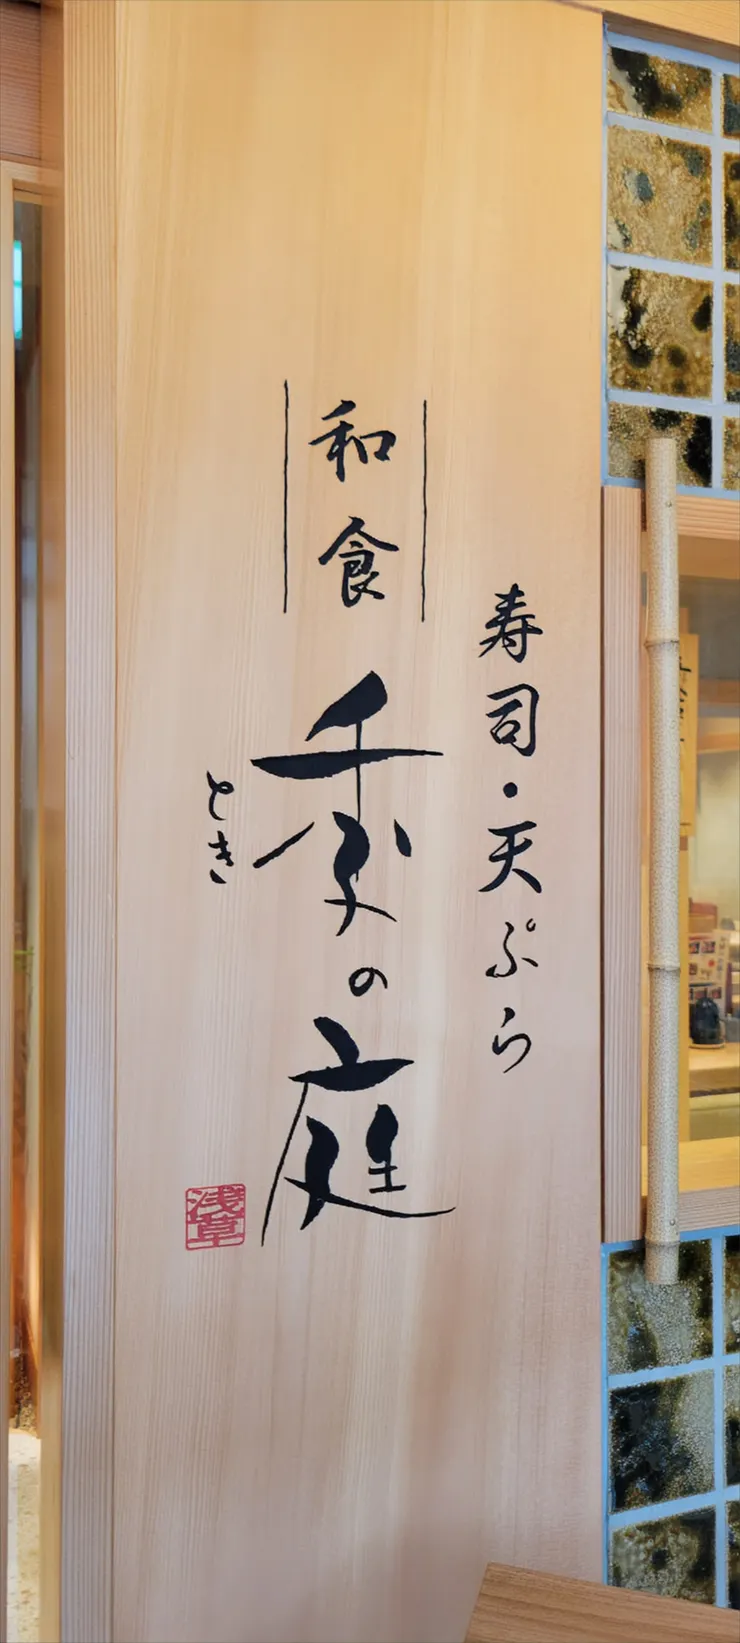 寿司・天ぷら
和食
季の庭
とき
浅草